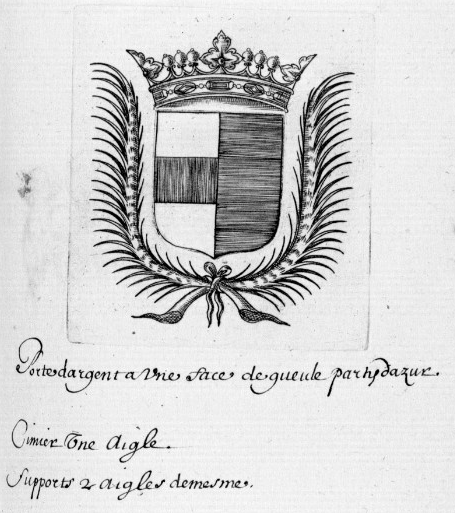 Porte dargent a Vne face de gueule party dazur.
Cimier Vne Aigle.
Supports 2 aigles demesme.